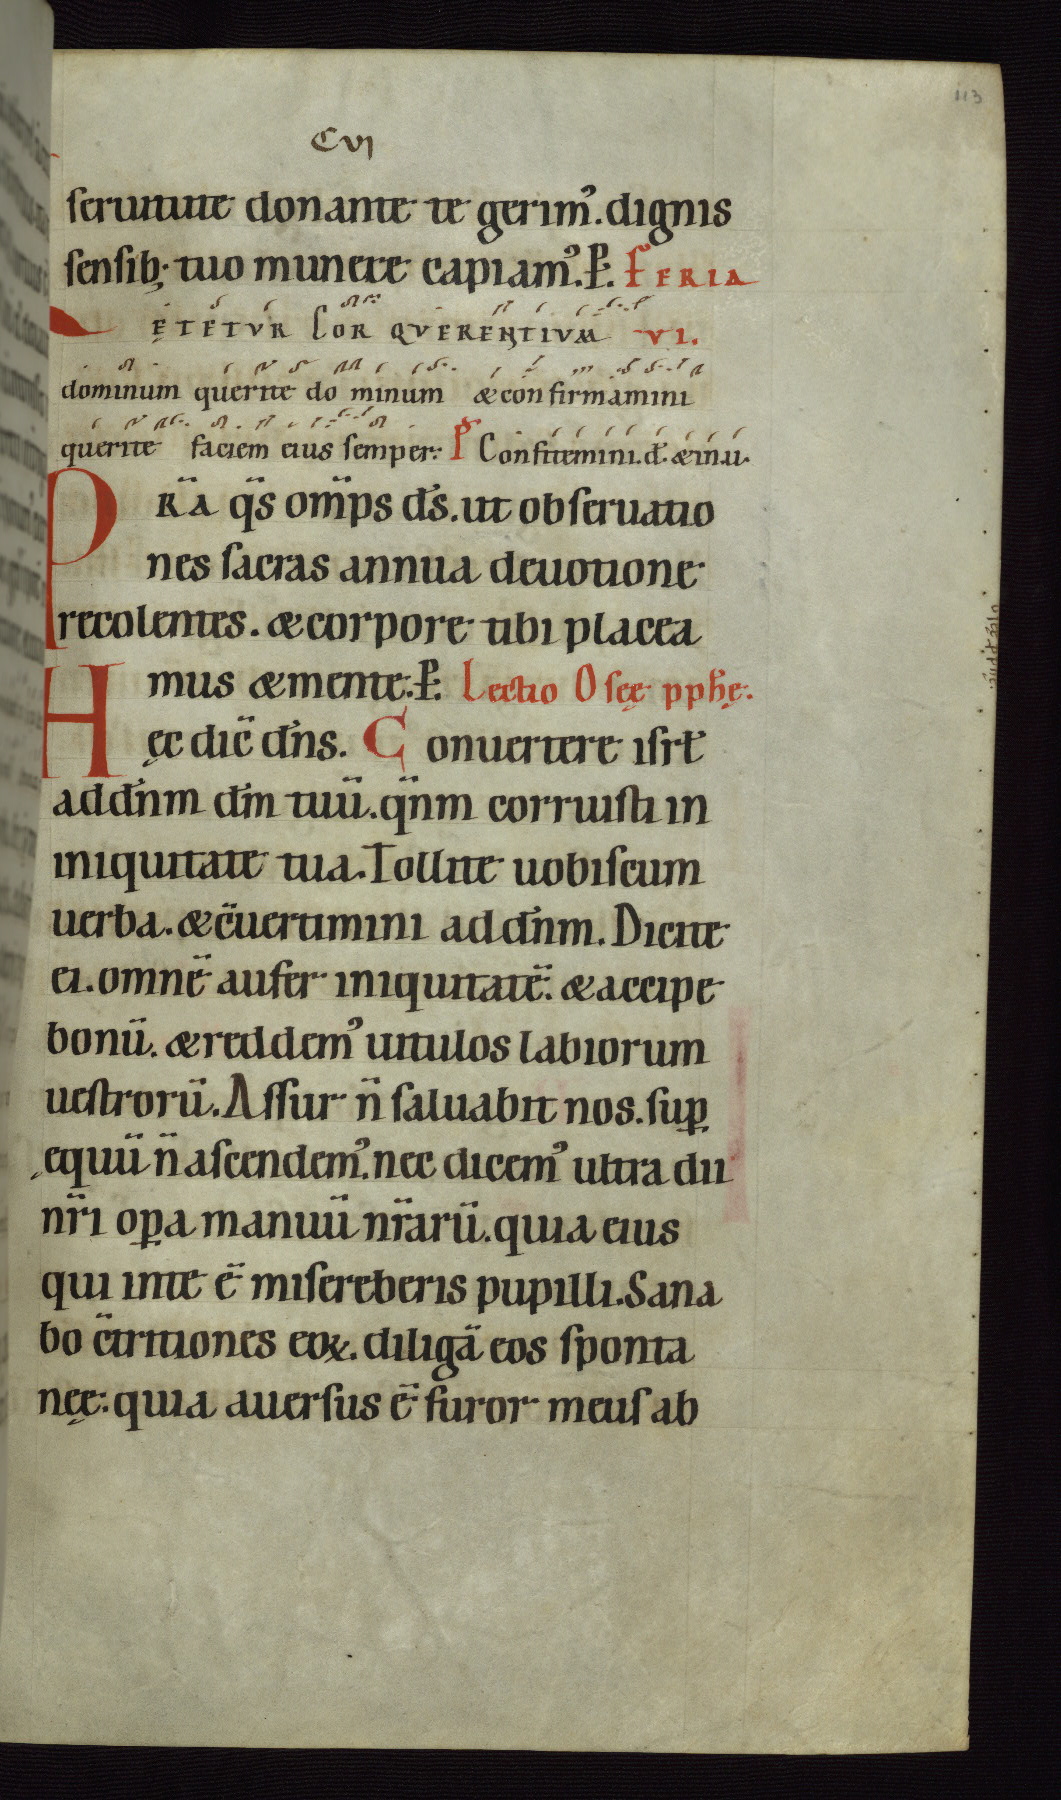 113
CVI
seruitute donante te gerim᾿. dignis
sensib; tuo munere capiam᾿. P. FERIA
LETETVR Cor QVERENTIVM VI.
dominum querite do minum & con firmamini
querite faciem eius semper: P Confitemini. d. & in.u.
PRA q̄s om̄ps d̄s. ut obseruatio
nes sacras annua deuotione
recolentes. & corpore tibi placea
mus & mente. P. Lectio Oseę pphę.
Hęc dic̄ dn̄s. Conuertere isrł
ad dn̄m dm̄ tuū. qn̄m corruisti in
iniquitate tua. Tollite uobiscum
uerba. & c̄uertimini ad dn̄m. Dicite
ei. omnē aufer iniquitatē. & accipe
bonū. & reddem᾿ uitulos labiorum
uestrorū. Assur n̄ saluabit nos. suꝑ
equū n̄ ascendem᾿. nec dicem᾿ ultra dii
nr̄i oꝑa manuū nr̄arū. quia eius
qui in te ē misereberis pupilli. Sana
bo c̄tritiones eoꝝ. diligā eos sponta
neę: quia auersus ē furor meus ab